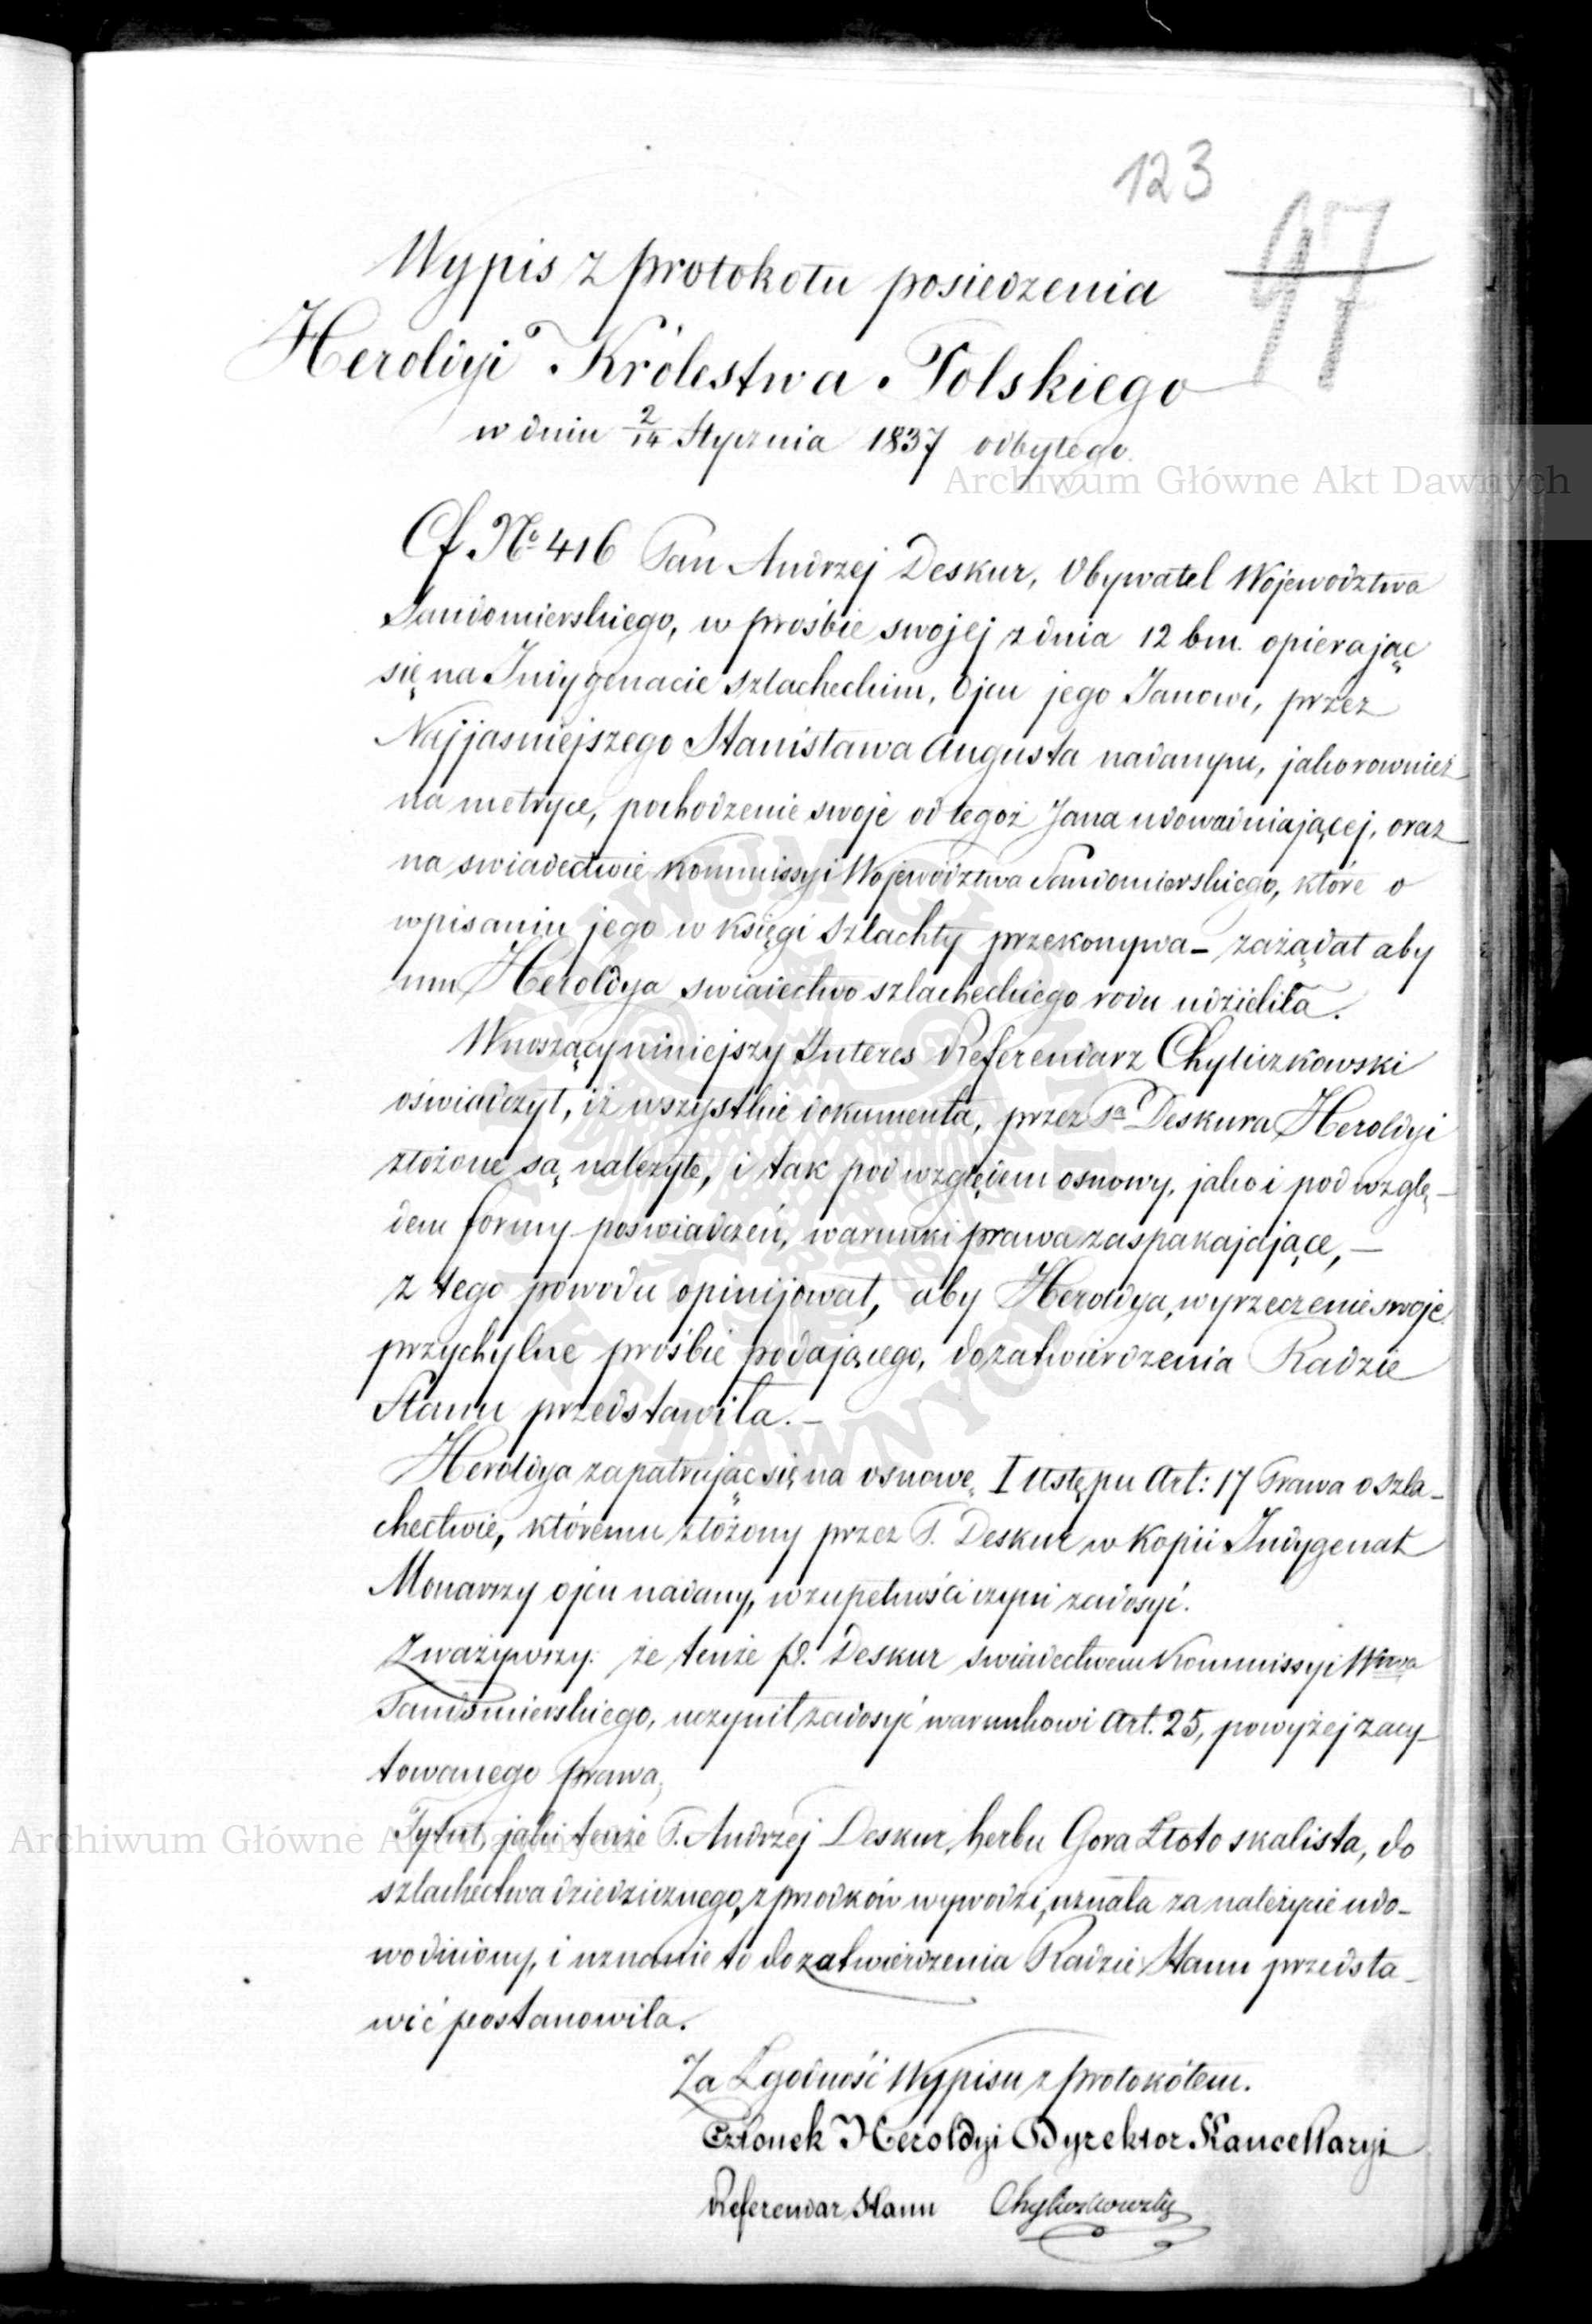 123
97
Wypis z protokołu posiedzenia
Heroldyi Królestwa Polskiego
w dniu 2/14 Stycznia 1837 odbytego.
Archiwum Główne Akt Dawnych
Cf. No 416 Pan Andrzej Deskur, Obywatel Województwa
Sandomierskiego, w prośbie swojej z dnia 12 bm. opierając
się na Indygenacie szlacheckim, Ojcu jego Janowi, przez
Najjasniejszego Stanisława Augusta nadanym, jako rownież
na metryce, pochodzenie swoje od tegoż Jana udowadniającej, oraz
na swiadectwie Kommissyi Województwa Sandomierskiego, które o
wpisaniu jego w księgi szlachty przekonywa – zażądał aby
mu Heroldya swiadectwo szlacheckiego rodu udzieliła.
Wnoszący niniejszy Interes Referendarz Chyliczkowski
oświadczył, iż wszystkie dokumenta, przez Pa Deskura Heroldyi
złożone są należyte, i tak pod względem osnowy, jako i pod wzglę-
dem formy poswiadczeń, warunki prawa zaspakajające, –
z tego powodu opinijował, aby Heroldya, wyrzeczenie swoje
przychylne prośbie podającego, do zatwierdzenia Radzie
Stanu przedstawiła. –
Heroldya zapatrując się na osnowę I Ustępu Art: 17 Prawa o szla-
chectwie, któremu złożony przez P. Deskur w Kopii Indygenat
Monarszy ojcu nadany, w zupełności czyni zadosyć.
Zważywszy: że tenże P. Deskur swiadectwem Kommissyi Wwa
Sandomierskiego, uczynił zadosyć warunkowi Art. 25, powyżej zacy-
towanego prawa,
Tytuł, jaki tenże P. Andrzej Deskur, herbu Gora Złoto skalista, do
szlachectwa dziedzicznego, z przodków wywodzi, uznała za należycie udo-
wodniony, i uznanie to do zatwierdzenia Radzie Stanu przedsta-
wić postanowiła.
Archiwum Główne Akt Dawnych
Za Zgodność Wypisu z protokółem.
Członek Heroldyi Dyrektor Kancellaryi
Referendarz Stanu Chyliczkowski
ARCHIWUM GŁÓWNE AKT DAWNYCH